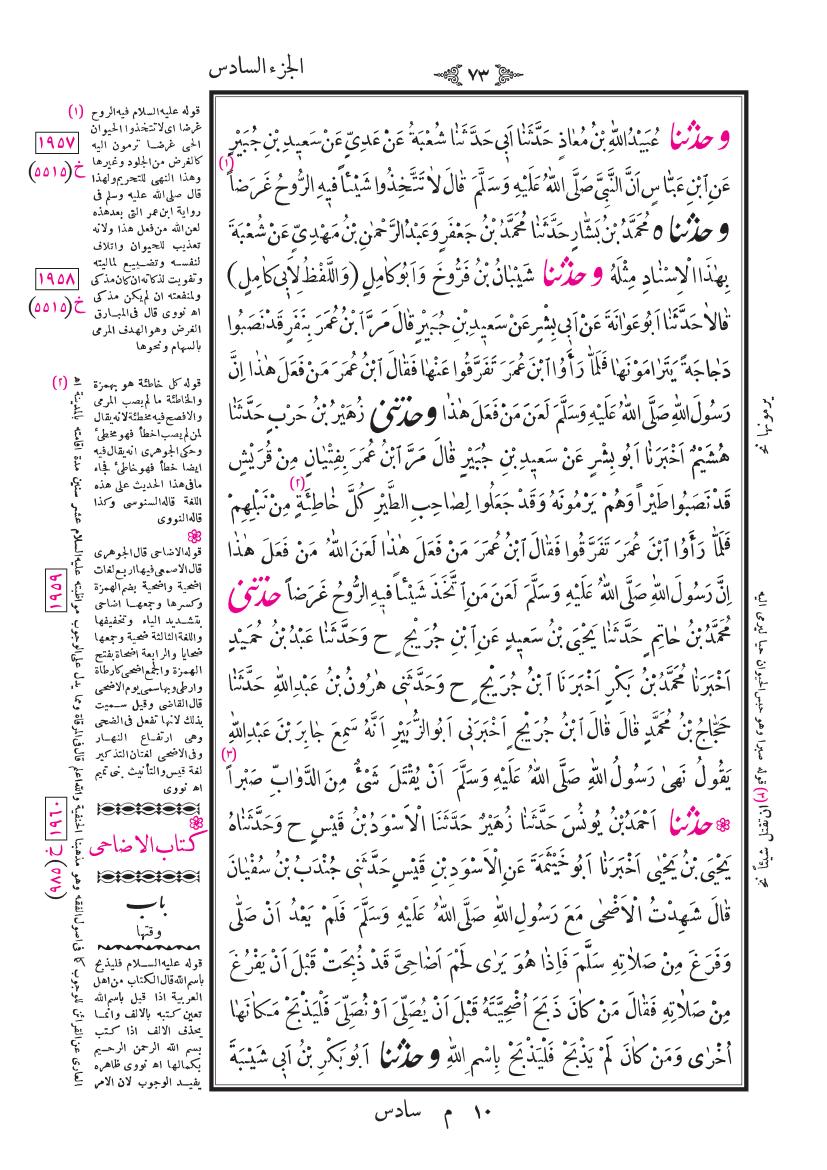 الجزء السادس
٧٣
وحَدَّثَنَا عُبَيْدُ اللهِ بْنُ مُعَاذٍ حَدَّثَنَا اَبِى حَدَّثَنَا شُعْبَةُ عَنْ عَدِىٍّ عَنْ سَعِيدِ بْنِ جُبَيْرٍ
عَنِ ابْنِ عَبَّاسٍ اَنَّ النَّبِىَّ صَلَّى اللهُ عَلَيْهِ وَسَلَّمَ قَالَ لاَ تَتَّخِذُوا شَيْئاً فيهِ الرُّوحُ غَرَضاً (١)
وحَدَّثَنَا ٥ مُحَمَّدُ بْنُ بَشَّارٍ حَدَّثَنَا مُحَمَّدُ بْنُ جَعْفَرٍ وَعَبْدُ الرَّحْمٰنِ بْنُ مَهْدِىٍّ عَنْ شُعْبَةَ
بِهٰذَا الْاِسْنَادِ مِثْلَهُ وحَدَّثَنَا شَيْبَانُ بْنُ فَرُّوخَ وَاَبُو كَامِلٍ (وَاللَّفْظُ لِاَبِى كَامِلٍ)
قَالاَ حَدَّثَنَا اَبُو عَوَانَةَ عَنْ اَبِى بِشْرٍ عَنْ سَعِيدِ بْنِ جُبَيْرٍ قَالَ مَرَّ ابْنُ عُمَرَ بِنَفَرٍ قَدْ نَصَبُوا
دَجَاجَةً يَتَرَامَوْنَهَا فَلَمَّا رَأَوُا ابْنَ عُمَرَ تَفَرَّقُوا عَنْهَا فَقَالَ ابْنُ عُمَرَ مَنْ فَعَلَ هٰذَا اِنَّ
رَسُولَ اللهِ صَلَّى اللهُ عَلَيْهِ وَسَلَّمَ لَعَنَ مَنْ فَعَلَ هٰذَا وحَدَّثَنِى زُهَيْرُ بْنُ حَرْبٍ حَدَّثَنَا
هُشَيْمٌ اَخْبَرَنَا اَبُو بِشْرٍ عَنْ سَعِيدِ بْنِ جُبَيْرٍ قَالَ مَرَّ ابْنُ عُمَرَ بِفِتْيَانٍ مِنْ قُرَيْشٍ
قَدْ نَصَبُوا طَيْراً وَهُمْ يَرْمُونَهُ وَقَدْ جَعَلُوا لِصَاحِبِ الطَّيْرِ كُلَّ خَاطِئَةٍ (٢) مِنْ نَبْلِهِمْ
فَلَمَّا رَأَوُا ابْنَ عُمَرَ تَفَرَّقُوا فَقَالَ ابْنُ عُمَرَ مَنْ فَعَلَ هٰذَا لَعَنَ اللهُ مَنْ فَعَلَ هٰذَا
اِنَّ رَسُولَ اللهِ صَلَّى اللهُ عَلَيْهِ وَسَلَّمَ لَعَنَ مَنِ اتَّخَذَ شَيْئاً فيهِ الرُّوحُ غَرَضاً حَدَّثَنِى
مُحَمَّدُ بْنُ حَاتِمٍ حَدَّثَنَا يَحْيَى بْنُ سَعِيدٍ عَنِ ابْنِ جُرَيْجٍ ح وَحَدَّثَنَا عَبْدُ بْنُ حُمَيْدٍ
اَخْبَرَنَا مُحَمَّدُ بْنُ بَكْرٍ اَخْبَرَنَا ابْنُ جُرَيْجٍ ح وَحَدَّثَنِى هٰرُونُ بْنُ عَبْدِ اللهِ حَدَّثَنَا
حَجَّاجُ بْنُ مُحَمَّدٍ قَالَ قَالَ ابْنُ جُرَيْجٍ اَخْبَرَنِى اَبُو الزُّبَيْرِ اَنَّهُ سَمِعَ جَابِرَ بْنَ عَبْدِ اللهِ
يَقُولُ نَهٰى رَسُولُ اللهِ صَلَّى اللهُ عَلَيْهِ وَسَلَّمَ اَنْ يُقْتَلَ شَىْءٌ مِنَ الدَّوَابِّ صَبْراً (٣)
حَدَّثَنَا اَحْمَدُ بْنُ يُونُسَ حَدَّثَنَا زُهَيْرٌ حَدَّثَنَا الْاَسْوَدُ بْنُ قَيْسٍ ح وَحَدَّثَنَاهُ
يَحْيَى بْنُ يَحْيٰى اَخْبَرَنَا اَبُو خَيْثَمَةَ عَنِ الْاَسْوَدِ بْنِ قَيْسٍ حَدَّثَنِى جُنْدَبُ بْنُ سُفْيَانَ
قَالَ شَهِدْتُ الْاَضْحٰى مَعَ رَسُولِ اللهِ صَلَّى اللهُ عَلَيْهِ وَسَلَّمَ فَلَمْ يَعْدُ اَنْ صَلَّى
وَفَرَغَ مِنْ صَلاَتِهِ سَلَّمَ فَاِذَا هُوَ يَرٰى لَحْمَ اَضَاحِىَّ قَدْ ذُبِحَتْ قَبْلَ اَنْ يَفْرُغَ
مِنْ صَلاَتِهِ فَقَالَ مَنْ كَانَ ذَبَحَ اُضْحِيَّتَهُ قَبْلَ اَنْ يُصَلِّىَ اَوْ نُصَلِّىَ فَلْيَذْبَحْ مَكَانَهَا
اُخْرٰى وَمَنْ كَانَ لَمْ يَذْبَحْ فَلْيَذْبَحْ بِاسْمِ اللهِ وحَدَّثَنَا اَبُو بَكْرِ بْنُ اَبِى شَيْبَةَ
(١) قوله عليه السلام فيه الروح
غرضا اى لا تتخذوا الحيوان
الحى غرضا ترمون اليه
كالغرض من الجلود وغيرها
وهذا النهى للتحريم ولهذا
قال صلى الله عليه وسلم فى
رواية ابن عمر التى بعد هذه
لعن الله من فعل هذا ولانه
تعذيب للحيوان واتلاف
لنفسه وتضييع لماليته
وتفويت لذكاته ان كان مذكى
ولمنفعته ان لم يكن مذكى
اه نووى قال فى المبارق
الغرض وهو الهدف المرمى
بالسهام ونحوها
(٢) قوله كل خاطئة هو بهمزة
والخاطئة ما لم يصب المرمى
والافصح فيه مخطئة لانه يقال
لمن لم يصب اخطأ فهو مخطئ
وحكى الجوهرى انه يقال فيه
ايضا خطأ فهو خاطئ فجاء
ما فى هذا الحديث على هذه
اللغة قاله السنوسى وكذا
قاله النووى
قوله الاضاحى قال الجوهرى
قال الاصمعى فيها اربع لغات
اضحية واضحية بضم الهمزة
وكسرها وجمعها اضاحى
بتشديد الياء وتخفيفها
واللغة الثالثة ضحية وجمعها
ضحايا والرابعة اضحاة بفتح
الهمزة والجمع اضحى كارطاة
وارطى وبها سمى يوم الاضحى
قال القاضى وقيل سميت
بذلك لانها تفعل فى الضحى
وهى ارتفاع النهار
وفى الاضحى لغتان التذكير
لغة قيس والتأنيث بنى تميم
اه نووى
كتاب الاضاحى
باب
وقتها
قوله عليه السلام فليذبح
باسم الله قال الكتاب من اهل
العربية اذا قيل باسم الله
تعين كتبه بالالف وانما
يحذف الالف اذا كتب
بسم الله الرحمن الرحيم
بكمالها اه نووى ظاهره
يفيد الوجوب لان الامر
العارى عن القرائن للوجوب كما فى اصول الفقه وهو مذهبنا الحنفية والله اعلم قال فى المرقاة ومما يدل على الوجوب مواظبته عليه السلام عشر سنين مدة اقامته بالمدينة اه
١٩٥٧
خ (٥٥١٥)
١٩٥٨
خ (٥٥١٥)
١٩٥٩
١٩٦٠
خ (٩٨٥)
(٣) قوله صبرا وهو حبس الحيوان حيا ليرمى اليه
ان تقتل شيئاً نخ
١٠ م سادس